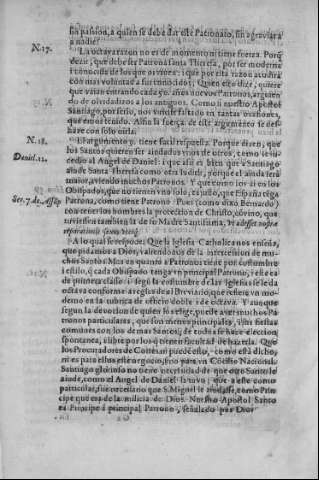 sin passion, a quien se debe dar este Patronato, sin agraviar a
a nadie.
N. 17. La octava razon no es de momento ni tiene fuerza. Porq̃
dezir, que debe ser Patrona santa Theresa, por ser moderna
i conocida de los que oi viven: i que por esta razon acudirá
con mas voluntad a sus devotos; Quien esto dize, quiere
que vayan entrando cada  años nuevos Patronos, arguien
do de olvidadizos a los antiguos. Como si nuestro Apostol
Santiago, por serlo, nos uviesse faltado en tantas ocasiones,
que emos tenido. Assi la fuerça de este argumento se des
haze con solo oirla.
N. 18. El argumento 9. tiene facil respuesta. Porque dizen, que
los Santos quieren ser ayudados unos de otros, como se su-
Daniel. 12. cedio al Angel de Daniel: i que assi es bien que a Santiago
 de santa Theresia como otra Iudith, porque el ainda será
mayor, aviendo muchos Patronos. Y que como los ai en los
Obispados, que no tienen vno solo; es justo, que España
Ser. 7. de Assũp Patrona, como tiene Patrono: Pues (como dixo Bernardo)
con tener los hombres la proteccion de Christo, cōvino, que
tuviessen tambien la de su Madre Santissima, Vt adesset nostræ
reparationi sexus uterq;
A lo qual se respōde: Que la Iglesia Catholica nos enseña,
que pidamos a Dios, valiendonos de la intercession de mu-
chos Santos: Mas en quanto a Patronos tiene por costumbre
i estilo, q̃ cada Obispado tenga vn principal Patrono, i este ea
de primera classe: i segū la costumbre de las Iglesias se le da
octava conforme a reglas de el Breviario, que refiere vn mo-
derno en la rubrica de oficio doble i de octava. Y aunque
segun la devocion de quien los elige, puede aver muchos Pa-
tronos particulares, que son menos principales, i sus fiestas
comunes con los de mas Santos; de todos se haze eleccion
spontanea, i libre por los q̃ tienen facultad de hazerla. Que
los Procuradores de Cortes no puedē esto, como está dicho,
ni es para ellos este negocio, sino para vn Cōcilio Nacional.
Santiago glorioso no tiene necessidad de que otro Santo le
ainde, como el Angel de Daniel la tuvo; que a este como
particular, fue necessario que S. Miguel le aiudasse, como Prin
cipe que era de la milicia de Dios. Nuestro Apostol Santo
es Principe i principal Patrono, señalado por Dios